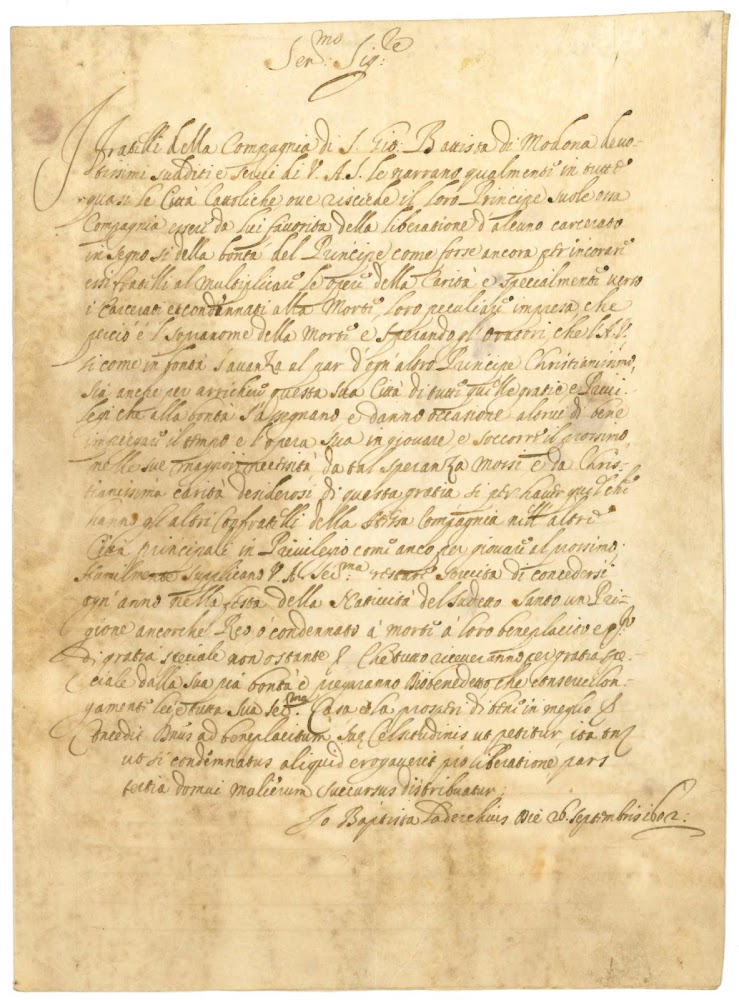 Ser.mo Sig.re
I fratelli della Compagnia di S. Gio: Battista di Modona devo-
tissimi sudditi e servi di V. A. S. le narrano qualmente in tutte
quasi le Città Catoliche ove risciede il loro Principe suole essa
Compagnia esser da lui favorita della liberatione d alcuno carcerato
in segno sì della bontà del Principe come forse ancora per incorare
essi fratelli al multiplicare le opere della Carità e spetialmente verso
i Carcerati et condennati alla Morte loro peculiare impresa che
perciò é l sopranome della Morte e sperando gli Oratori che l A. V.
si come in bontà s'avanza al par d'ogn altro Principe Christianissimo,
sia anche per arrichire questa sua Città di tutte quelle gratie e Privi-
legi che alla bontà s'assegnano e danno occasione altrui di bene
impiegare il tempo e l'opera sua in giovare e soccorrere il prossimo,
nelle sue maggiori necessità da tal speranza mossi e da Chris-
tianissima carità desiderosi di questa gratia sì per haver quel che
hanno gli altri Confratelli della stessa Compagnia nell' altre
Città principali in Privilegio come anco per giovare al prossimo;
Humilmente supplicano V. A. Ser.ma restare servita di concederli
ogn' anno nella festa della Natività del sudetto Santo un Pri-
gione ancorché Reo ó condennato á morte á loro beneplacito e
di gratia speciale non ostante Che tutto riceveranno per gratia spe-
ciale dalla sua pia bontà e pregaranno Dio benedetto che conservi lon-
gamente lei e tutta sua Ser.ma Casa et la prosperi di bene in meglio
Concedit Dnus ad beneplacitum suę Celsitudinis ut petitur ita tn
ut si condemnatus aliquid erogaverit pro liberatione pars
tertia domui mulierum succursus distribuatur;
Jo Baptista Laderchius Die 26. Septembris 1602: